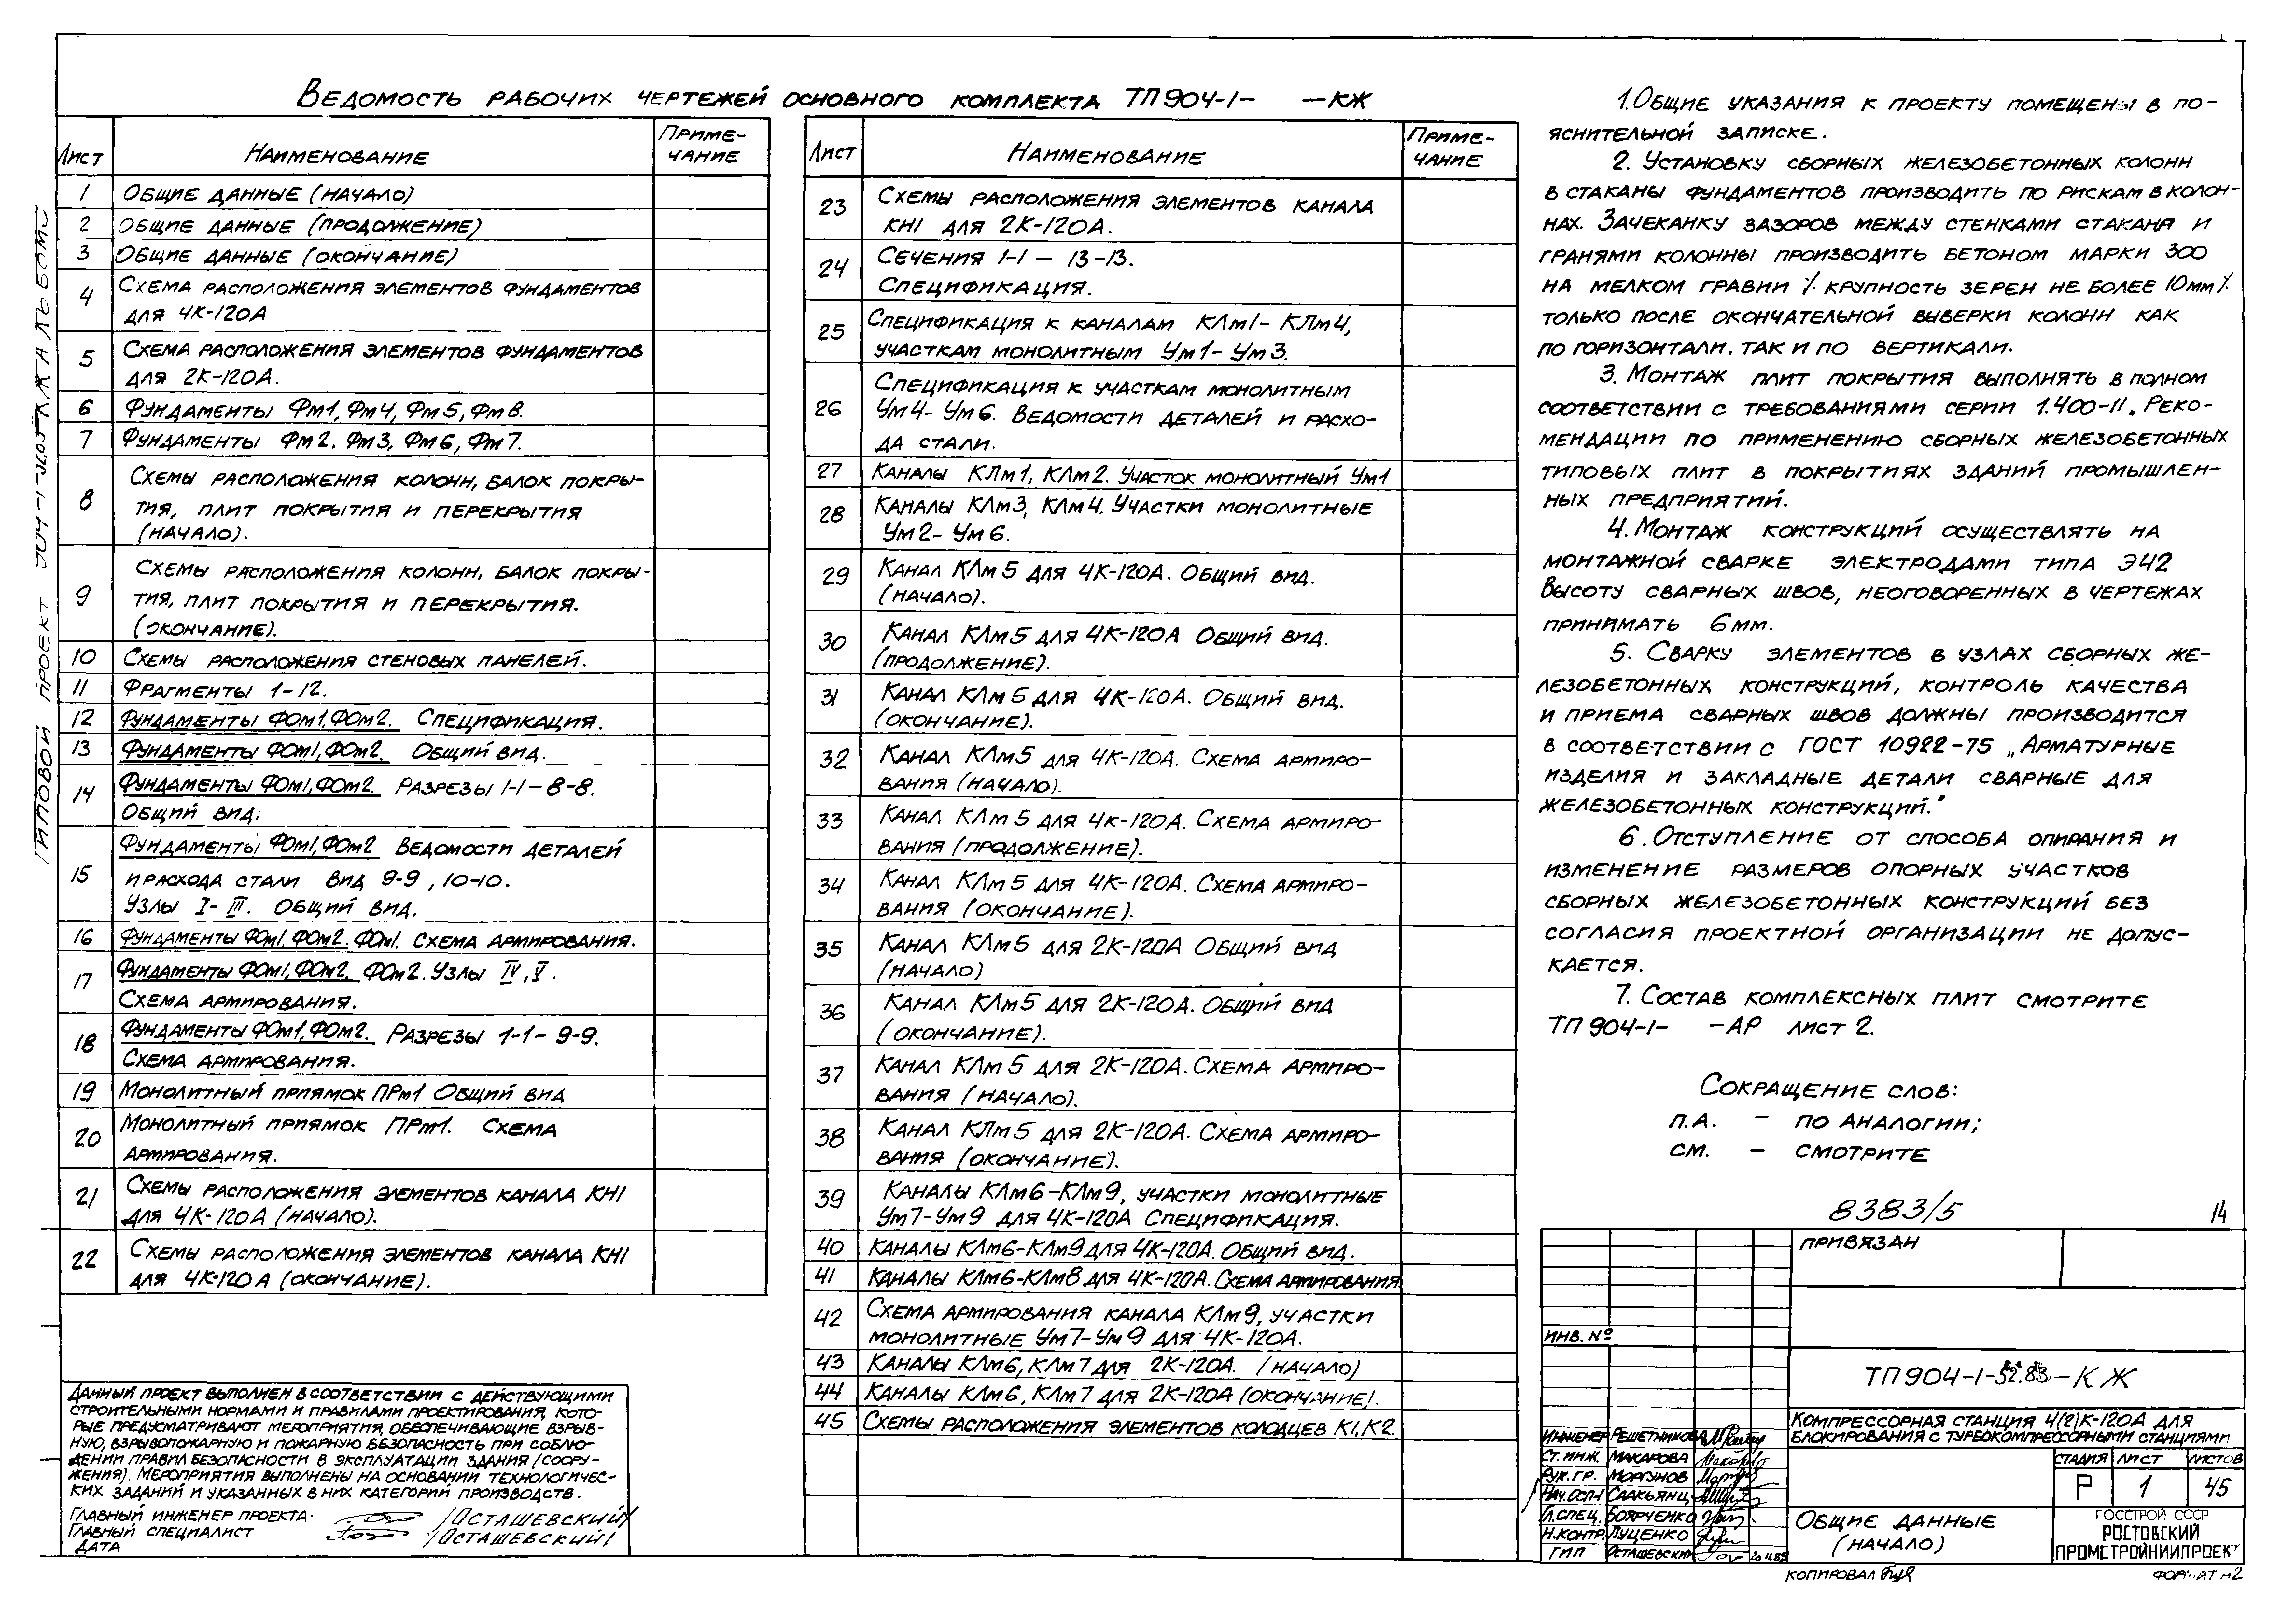 Ведомость рабочих чертежей основного комплекта ТП904-1- -КЖ
Лист Наименование Приме-
чание
1 Общие данные (начало)
2 Общие данные (продолжение)
3 Общие данные (окончание)
4 Схема расположения элементов фундаментов
для 4К-120А
5 Схема расположения элементов фундаментов
для 2К-120А.
6 Фундаменты Фм1, Фм4, Фм5, Фм8.
7 Фундаменты Фм2. Фм3, Фм6, Фм7.
8 Схемы расположения колонн, балок покры-
тия, плит покрытия и перекрытия
(начало).
9 Схемы расположения колонн, балок покры-
тия, плит покрытия и перекрытия.
(окончание).
10 Схемы расположения стеновых панелей.
11 Фрагменты 1-12.
12 Фундаменты ФОм1, ФОм2. Спецификация.
13 Фундаменты ФОм1, ФОм2. Общий вид.
14 Фундаменты ФОм1, ФОм2. Разрезы 1-1-8-8.
Общий вид.
15 Фундаменты ФОм1, ФОм2 Ведомости деталей
и расхода стали вид 9-9, 10-10.
Узлы I-III. Общий вид.
16 Фундаменты ФОм1, ФОм2. ФОм1. Схема армирования.
17 Фундаменты ФОм1, ФОм2. ФОм2. Узлы IV, V.
Схема армирования.
18 Фундаменты ФОм1, ФОм2. Разрезы 1-1-9-9.
Схема армирования.
19 Монолитный приямок ПРм1 Общий вид
20 Монолитный приямок ПРм1. Схема
армирования.
21 Схемы расположения элементов канала КН1
для 4К-120А (начало).
22 Схемы расположения элементов канала КН1
для 4К-120А (окончание).
Лист Наименование Приме-
чание
23 Схемы расположения элементов канала
КН1 для 2К-120А.
24 Сечения 1-1 - 13-13.
Спецификация.
25 Спецификация к каналам КЛм1-КЛм4,
участкам монолитным Ум1-Ум3.
26 Спецификация к участкам монолитным
Ум4-Ум6. Ведомости деталей и расхо-
да стали.
27 Каналы КЛм1, КЛм2. Участок монолитный Ум1
28 Каналы КЛм3, КЛм4. Участки монолитные
Ум2-Ум6.
29 Канал КЛм5 для 4К-120А. Общий вид.
(начало).
30 Канал КЛм5 для 4К-120А Общий вид.
(продолжение).
31 Канал КЛм5 для 4К-120А. Общий вид.
(окончание).
32 Канал КЛм5 для 4К-120А. Схема армиро-
вания (начало).
33 Канал КЛм5 для 4К-120А. Схема армиро-
вания (продолжение).
34 Канал КЛм5 для 4К-120А. Схема армиро-
вания (окончание).
35 Канал КЛм5 для 2К-120А Общий вид
(начало)
36 Канал КЛм5 для 2К-120А. Общий вид
(окончание).
37 Канал КЛм5 для 2К-120А. Схема армиро-
вания (начало).
38 Канал КЛм5 для 2К-120А. Схема армиро-
вания (окончание).
39 Каналы КЛм6-КЛм9, участки монолитные
Ум7-Ум9 для 4К-120А Спецификация.
40 Каналы КЛм6-КЛм9 для 4К-120А. Общий вид.
41 Каналы КЛм6-КЛм8 для 4К-120А. Схема армирования.
42 Схема армирования канала КЛм9, участки
монолитные Ум7-Ум9 для 4К-120А.
43 Каналы КЛм6, КЛм7 для 2К-120А. (начало)
44 Каналы КЛм6, КЛм7 для 2К-120А (окончание).
45 Схемы расположения элементов колодцев К1, К2.
1. Общие указания к проекту помещены в по-
яснительной записке.
2. Установку сборных железобетонных колонн
в стаканы фундаментов производить по рискам в колон-
нах. Зачеканку зазоров между стенками стакана и
гранями колонны производить бетоном марки 300
на мелком гравии /крупность зерен не более 10мм/.
только после окончательной выверки колонн как
по горизонтали, так и по вертикали.
3. Монтаж плит покрытия выполнять в полном
соответствии с требованиями серии 1.400-11 „Реко-
мендации по применению сборных железобетонных
типовых плит в покрытиях зданий промышлен-
ных предприятий.
4. Монтаж конструкций осуществлять на
монтажной сварке электродами типа Э42
Высоту сварных швов, неоговоренных в чертежах
принимать 6мм.
5. Сварку элементов в узлах сборных же-
лезобетонных конструкций, контроль качества
и приема сварных швов должны производится
в соответствии с ГОСТ 10922-75 „Арматурные
изделия и закладные детали сварные для
железобетонных конструкций."
6. Отступление от способа опирания и
изменение размеров опорных участков
сборных железобетонных конструкций без
согласия проектной организации не допус-
кается.
7. Состав комплексных плит смотрите
ТП 904-1- -АР лист 2.
Сокращение слов:
п.а. - по аналогии;
см. - смотрите
8383/5 14
Привязан
Инв. №
ТП904-1-52.83-КЖ
Компрессорная станция 4(2)К-120А для
блокирования с турбокомпрессорными станциями
Стадия Лист Листов
Р 1 45
Общие данные
(начало)
Госстрой СССР
Ростовский
Промстройниипроект
Инженер Решетникова
Ст. инж. Макарова
Рук. гр. Моргунов
Нач. осп-1 Саакьянц
Гл. спец. Боярченко
Н. контр. Луценко
ГИП Осташевский
Копировал
Формат А2
Данный проект выполнен в соответствии с действующими
строительными нормами и правилами проектирования, кото-
рые предусматривают мероприятия, обеспечивающие взрыв-
ную, взрывопожарную и пожарную безопасность при соблю-
дении правил безопасности в эксплуатации здания (соору-
жения). Мероприятия выполнены на основании технологичес-
ких заданий и указанных в них категорий производств.
Главный инженер проекта. /Осташевский/
Главный специалист /Осташевский/
Дата
Типовой проект
Альбом 5